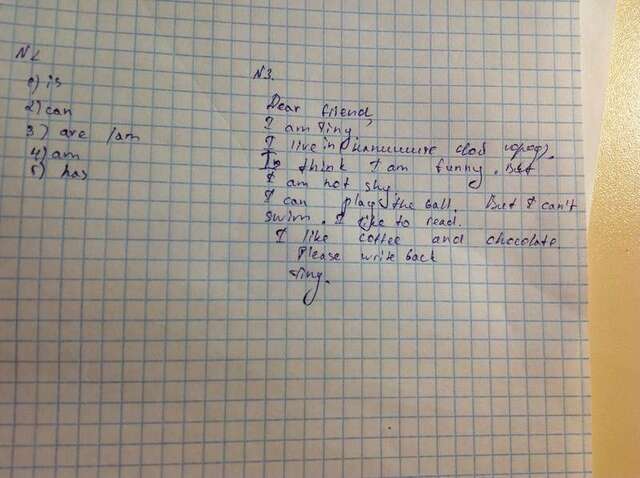 N2
1) is
2) can
3) are /am
4) am
5) has
N3.
Dear friend,
I am Tiny.
I live in (напишите свой город).
I think I am funny. But
I am not shy.
I can play the ball. But I can't
swim. I like to read.
I like coffee and chocolate.
Please write back
Tiny.